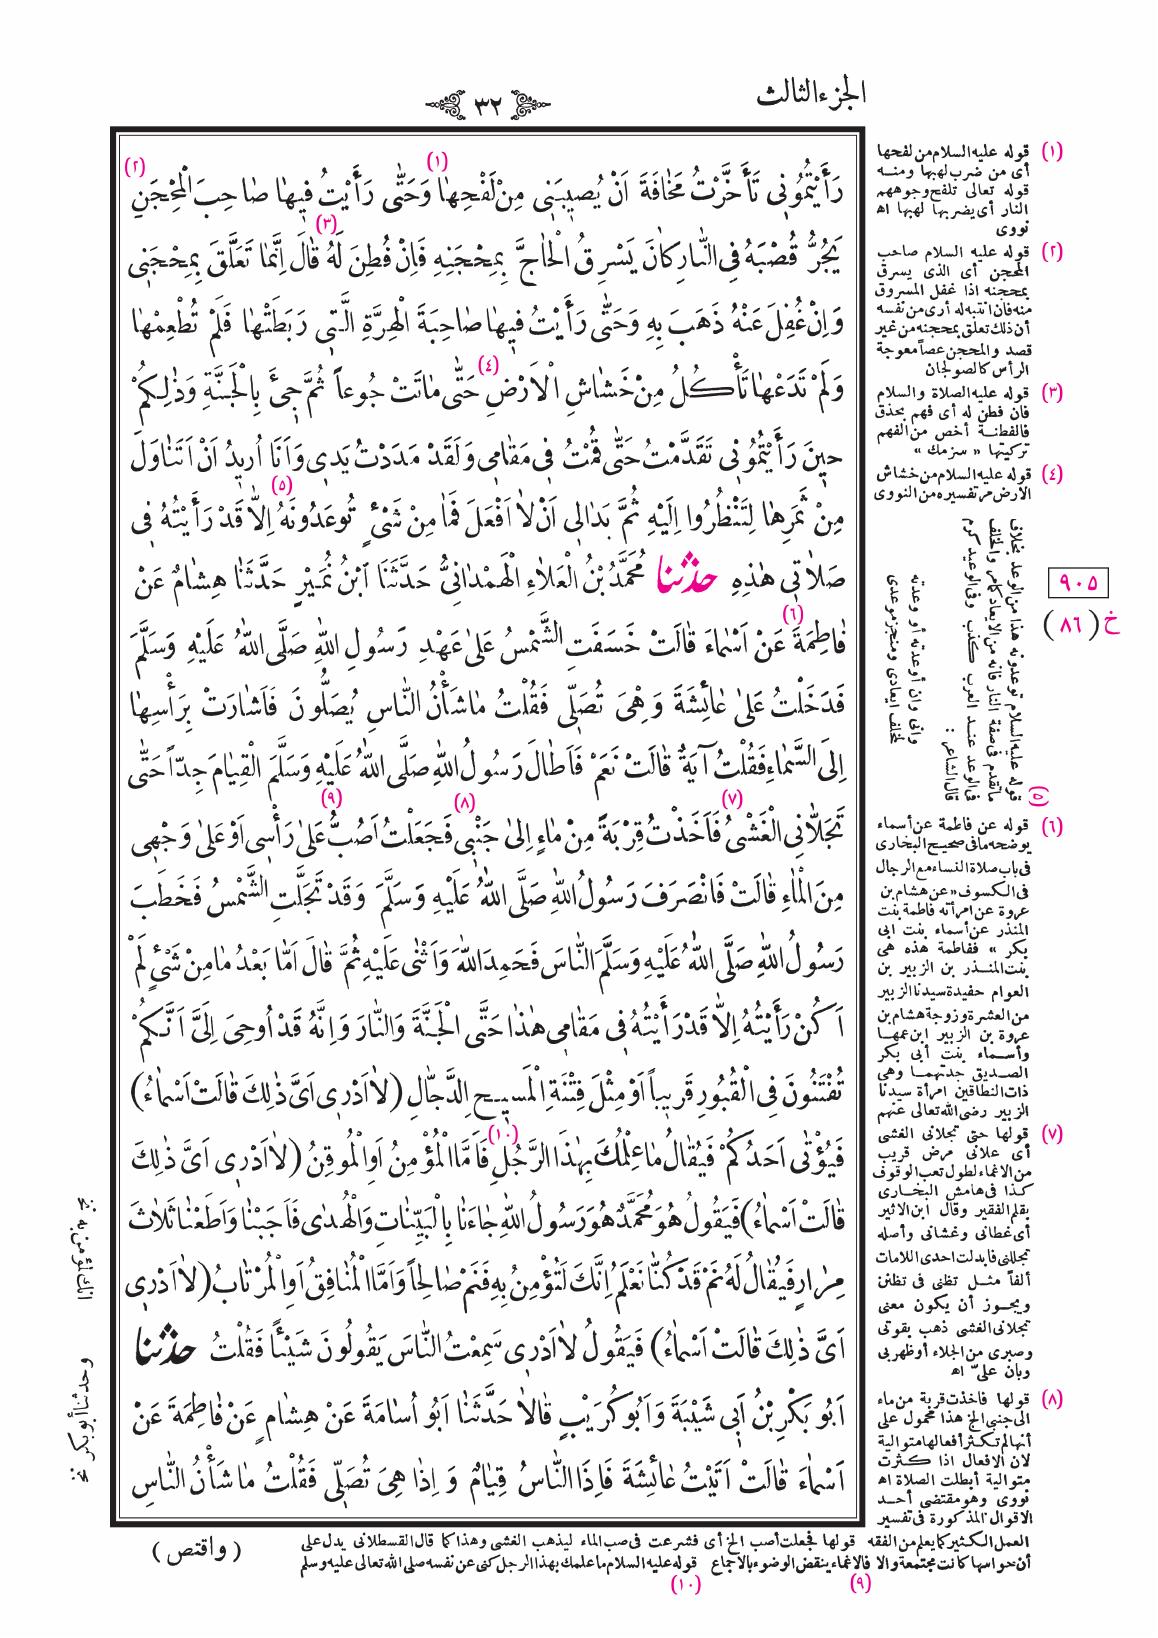 الجزء الثالث
٣٢
رَأَيْتُمُونِي تَأَخَّرْتُ مَخَافَةَ اَنْ يُصِيبَنِي مِنْ لَفْحِهَا وَحَتَّى رَأَيْتُ فِيهَا صَاحِبَ الْمِحْجَنِ
يَجُرُّ قُصْبَهُ فِي النَّارِ كَانَ يَسْرِقُ الْحَاجَّ بِمِحْجَنِهِ فَاِنْ فُطِنَ لَهُ قَالَ اِنَّمَا تَعَلَّقَ بِمِحْجَنِي
وَاِنْ غُفِلَ عَنْهُ ذَهَبَ بِهِ وَحَتَّى رَأَيْتُ فِيهَا صَاحِبَةَ الْهِرَّةِ الَّتِي رَبَطَتْهَا فَلَمْ تُطْعِمْهَا
وَلَمْ تَدَعْهَا تَأْكُلُ مِنْ خَشَاشِ الْاَرْضِ حَتَّى مَاتَتْ جُوعاً ثُمَّ جِيءَ بِالْجَنَّةِ وَذٰلِكُمْ
حِينَ رَأَيْتُمُونِي تَقَدَّمْتُ حَتَّى قُمْتُ فِي مَقَامِي وَلَقَدْ مَدَدْتُ يَدِي وَاَنَا اُرِيدُ اَنْ اَتَنَاوَلَ
مِنْ ثَمَرِهَا لِتَنْظُرُوا اِلَيْهِ ثُمَّ بَدَا لِي اَنْ لَا اَفْعَلَ فَمَا مِنْ شَيْءٍ تُوعَدُونَهُ اِلَّا قَدْ رَأَيْتُهُ فِي
صَلَاتِي هٰذِهِ حدثنا مُحَمَّدُ بْنُ الْعَلَاءِ الْهَمْدَانِيُّ حَدَّثَنَا ابْنُ نُمَيْرٍ حَدَّثَنَا هِشَامٌ عَنْ
فَاطِمَةَ عَنْ اَسْمَاءَ قَالَتْ خَسَفَتِ الشَّمْسُ عَلَى عَهْدِ رَسُولِ اللهِ صَلَّى اللهُ عَلَيْهِ وَسَلَّمَ
فَدَخَلْتُ عَلَى عَائِشَةَ وَهِيَ تُصَلِّي فَقُلْتُ مَا شَأْنُ النَّاسِ يُصَلُّونَ فَاَشَارَتْ بِرَأْسِهَا
اِلَى السَّمَاءِ فَقُلْتُ آيَةٌ قَالَتْ نَعَمْ فَاَطَالَ رَسُولُ اللهِ صَلَّى اللهُ عَلَيْهِ وَسَلَّمَ الْقِيَامَ جِدّاً حَتَّى
تَجَلَّانِي الْغَشْيُ فَاَخَذْتُ قِرْبَةً مِنْ مَاءٍ اِلَى جَنْبِي فَجَعَلْتُ اَصُبُّ عَلَى رَأْسِي اَوْ عَلَى وَجْهِي
مِنَ الْمَاءِ قَالَتْ فَانْصَرَفَ رَسُولُ اللهِ صَلَّى اللهُ عَلَيْهِ وَسَلَّمَ وَقَدْ تَجَلَّتِ الشَّمْسُ فَخَطَبَ
رَسُولُ اللهِ صَلَّى اللهُ عَلَيْهِ وَسَلَّمَ النَّاسَ فَحَمِدَ اللهَ وَاَثْنَى عَلَيْهِ ثُمَّ قَالَ اَمَّا بَعْدُ مَا مِنْ شَيْءٍ لَمْ
اَكُنْ رَأَيْتُهُ اِلَّا قَدْ رَأَيْتُهُ فِي مَقَامِي هٰذَا حَتَّى الْجَنَّةَ وَالنَّارَ وَاِنَّهُ قَدْ اُوحِيَ اِلَيَّ اَنَّكُمْ
تُفْتَنُونَ فِي الْقُبُورِ قَرِيباً اَوْ مِثْلَ فِتْنَةِ الْمَسِيحِ الدَّجَّالِ (لَا اَدْرِي اَيَّ ذٰلِكَ قَالَتْ اَسْمَاءُ)
فَيُؤْتَى اَحَدُكُمْ فَيُقَالُ مَا عِلْمُكَ بِهٰذَا الرَّجُلِ فَاَمَّا الْمُؤْمِنُ اَوِ الْمُوقِنُ (لَا اَدْرِي اَيَّ ذٰلِكَ
قَالَتْ اَسْمَاءُ) فَيَقُولُ هُوَ مُحَمَّدٌ هُوَ رَسُولُ اللهِ جَاءَنَا بِالْبَيِّنَاتِ وَالْهُدَى فَاَجَبْنَا وَاَطَعْنَا ثَلَاثَ
مِرَارٍ فَيُقَالُ لَهُ نَمْ قَدْ كُنَّا نَعْلَمُ اِنَّكَ لَتُؤْمِنُ بِهِ فَنَمْ صَالِحاً وَاَمَّا الْمُنَافِقُ اَوِ الْمُرْتَابُ (لَا اَدْرِي
اَيَّ ذٰلِكَ قَالَتْ اَسْمَاءُ) فَيَقُولُ لَا اَدْرِي سَمِعْتُ النَّاسَ يَقُولُونَ شَيْئاً فَقُلْتُ حدثنا
اَبُو بَكْرِ بْنُ اَبِي شَيْبَةَ وَاَبُو كُرَيْبٍ قَالَا حَدَّثَنَا اَبُو اُسَامَةَ عَنْ هِشَامٍ عَنْ فَاطِمَةَ عَنْ
اَسْمَاءَ قَالَتْ اَتَيْتُ عَائِشَةَ فَاِذَا النَّاسُ قِيَامٌ وَاِذَا هِيَ تُصَلِّي فَقُلْتُ مَا شَأْنُ النَّاسِ
(واقتص)
(١) قوله عليه السلام من لفحها
أى من ضرب لهبها ومنه
قوله تعالى تلفح وجوههم
النار أى يضربها لهبها اه
نووى
(٢) قوله عليه السلام صاحب
المحجن أى الذى يسرق
بمحجنه اذا غفل المسروق
منه فان انتبه له أرى من نفسه
أن ذلك تعلق بمحجنه من غير
قصد والمحجن عصاً معوجة
الرأس كالصولجان
(٣) قوله عليه الصلاة والسلام
فان فطن له أى فهم بحذق
فالفطنة أخص من الفهم
تركيتها « سزمك »
(٤) قوله عليه السلام من خشاش
الارض مر تفسيره من النووى
(٥) قوله عليه السلام توعدونه هذا من الوعد بخلاف
ما تقدم فى صفة النار فانه من الايعاد كمامر والخلف
فى الوعد عند العرب كذب وفى الوعيد كرم
قال الشاعر :
وانى وان أوعدته أو وعدته
لمخلف ايعادى ومنجز موعدى
٩٠٥
خ (٨٦)
(٦) قوله عن فاطمة عن أسماء
يوضحه ما فى صحيح البخارى
فى باب صلاة النساء مع الرجال
فى الكسوف «عن هشام بن
عروة عن امرأته فاطمة بنت
المنذر عن أسماء بنت ابى
بكر » ففاطمة هذه هى
بنت المنذر بن الزبير بن
العوام حفيدة سيدنا الزبير
من العشرة وزوجة هشام بن
عروة بن الزبير ابن عمها
وأسماء بنت أبى بكر
الصديق جدتهما وهى
ذات النطاقين امرأة سيدنا
الزبير رضى الله تعالى عنهم
(٧) قولها حتى تجلانى الغشى
أى علانى مرض قريب
من الاغماء لطول تعب الوقوف
كذا فى هامش البخارى
بقلم الفقير وقال ابن الاثير
أى غطانى وغشانى وأصله
تجللنى فابدلت احدى اللامات
ألفاً مثل تظنى فى تظنن
ويجوز أن يكون معنى
تجلانى الغشى ذهب بقوتى
وصبرى من الجلاء أو ظهر بى
وبان علىّ اه
(٨) قولها فاخذت قربة من ماء
الى جنبى الخ هذا محمول على
أنها لم تكثر أفعالها متوالية
لان الافعال اذا كثرت
متوالية أبطلت الصلاة اه
نووى وهو مقتضى أحد
الاقوال المذكورة فى تفسير
العمل الكثير كما يعلم من الفقه قولها فجعلت أصب الخ أى فشرعت فى صب الماء ليذهب الغشى وهذا كما قال القسطلانى يدل على
أن حواسها كانت مجتمعة والا فالاغماء ينقض الوضوء بالاجماع قوله عليه السلام ما علمك بهذا الرجل كنى عن نفسه صلى الله تعالى عليه وسلم
(٩) (١٠)
وحدثنا أبو بكر نخ